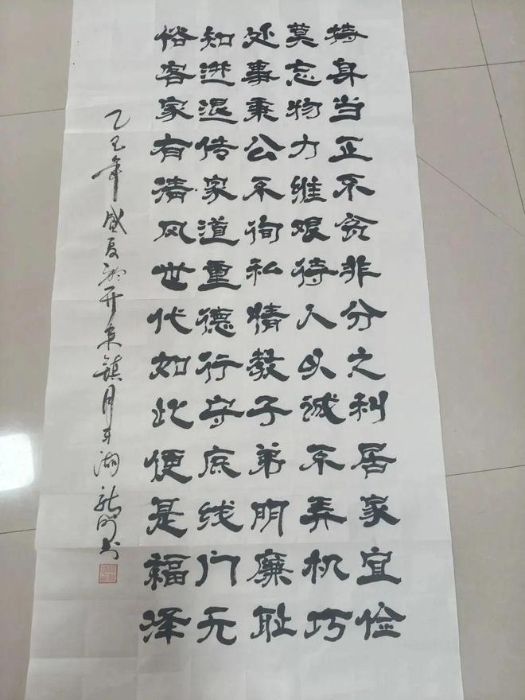 持身当正不贪非分之利居家宜俭
莫忘物力维艰待人以诚不弄机巧
处事秉公不徇私情教子弟明廉耻
知进退传家道重德行守底线门无
俗客家有清风世代如此便是福泽
乙巳年盛夏于开来镇月半湖龙门书